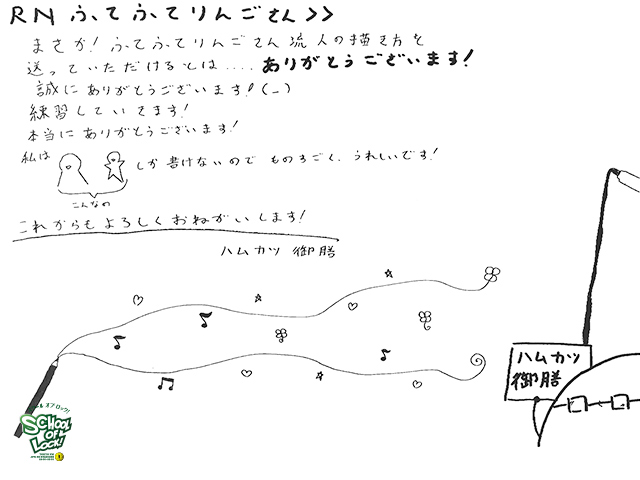 RN ふてふてりんごさん >>
まさか！ふてふてりんごさん流人の描き方を
送っていただけるとは....ありがとうございます！
誠にありがとうございます！(_)
練習していきます！
本当にありがとうございます！
私は
しか書けないのでものすごく、うれしいです！
こんなの
これからもよろしくおねがいします！
ハムカツ 御膳
ハムカツ
御膳
SCHOOL
OF
LOCK!